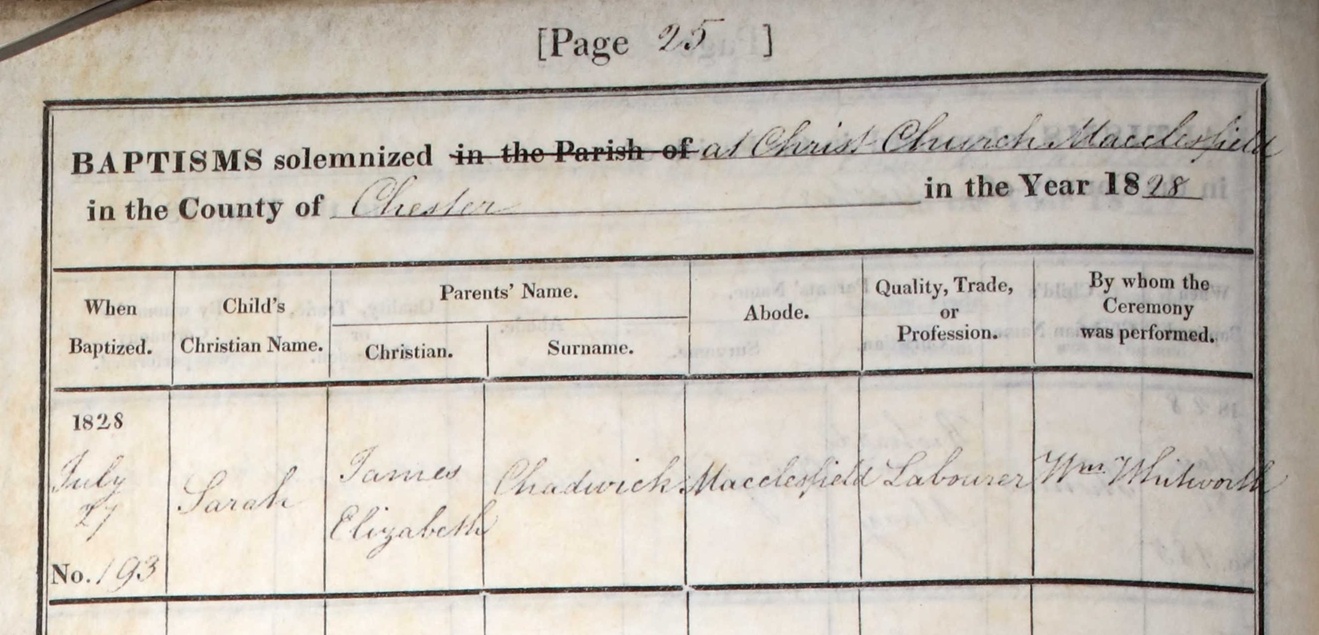 [Page 25 ]
BAPTISMS solemnized in the Parish of at Christ Church Macclesfield
in the County of Chester in the Year 1828
When Baptized.
Child's Christian Name.
Parents' Name.
Christian.
Surname.
Abode.
Quality, Trade, or Profession.
By whom the Ceremony was performed.
1828
July
27
No. 193
Sarah
James
Elizabeth
Chadwick
Macclesfield
Labourer
Wm Whitworth